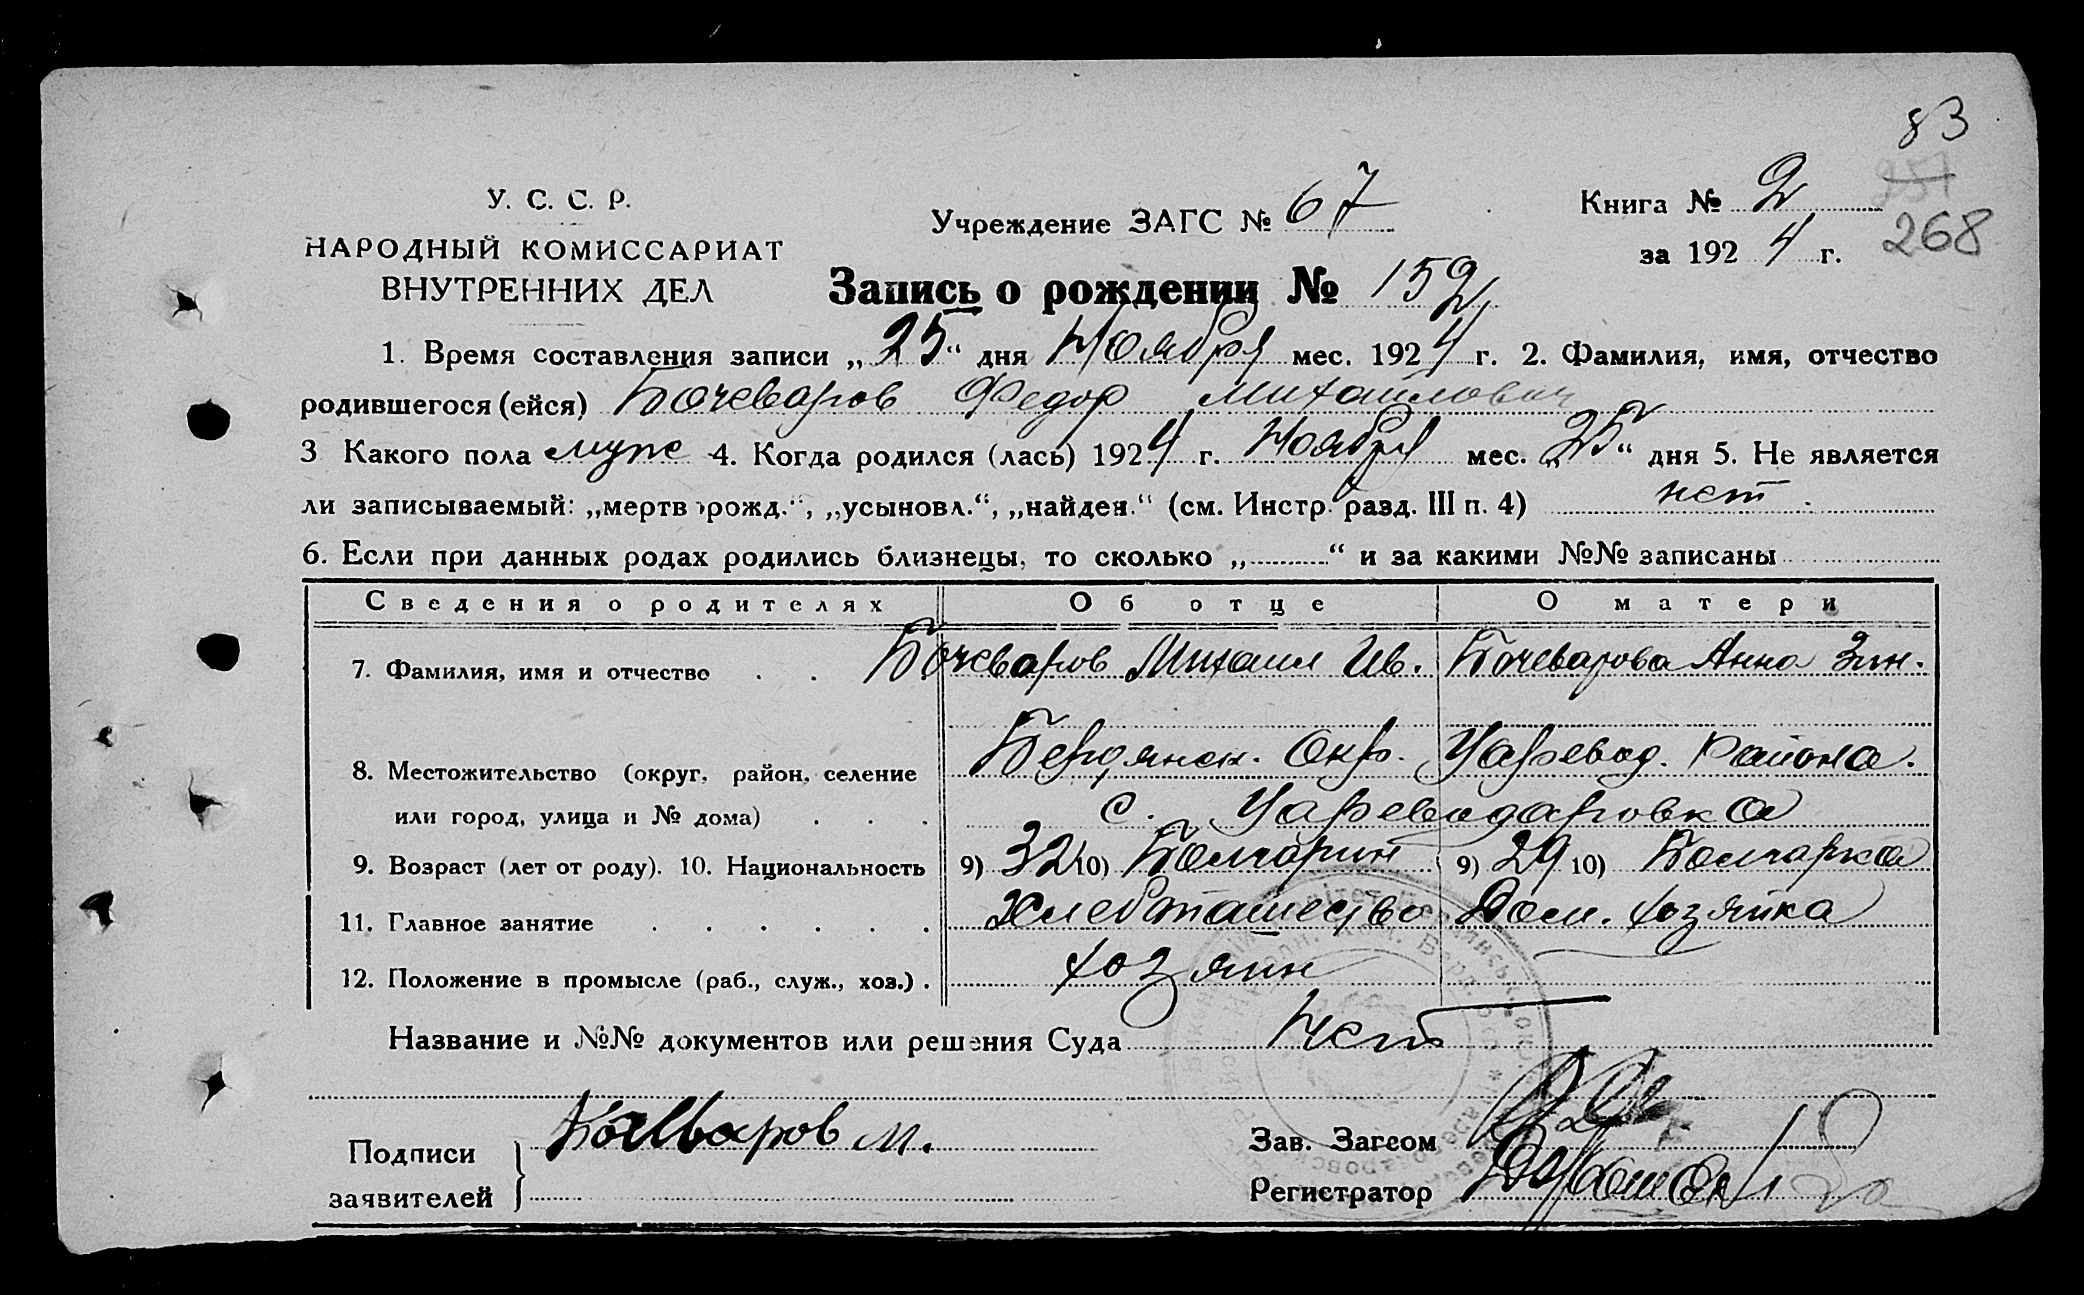 83
У. С. С. Р.
НАРОДНЫЙ КОМИССАРИАТ
ВНУТРЕННИХ ДЕЛ
Учреждение ЗАГС № 67
Книга № 2
за 1924 г.
268
Запись о рождении № 152
1. Время составления записи „25“ дня Ноября мес. 1924 г. 2. Фамилия, имя, отчество
родившегося (ейся) Бочеваров Федор Михайлович
3 Какого пола муж 4. Когда родился (лась) 1924 г. Ноября мес. „25“ дня 5. Не является
ли записываемый: „мертворожд.“, „усыновл.“, „найден.“ (см. Инстр. разд. III п. 4) нет.
6. Если при данных родах родились близнецы, то сколько „ “ и за какими №№ записаны
Сведения о родителях Об отце О матери
7. Фамилия, имя и отчество Бочеваров Михаил Ив. Бочеварова Анна Зин.
8. Местожительство (округ, район, селение Бердянск. Окр. Царевод. Района.
или город, улица и № дома) с. Цареводаровка
9. Возраст (лет от роду). 10. Национальность 9) 32 10) Болгарин 9) 29 10) Болгарка
11. Главное занятие Хлебопашество Дом. хозяйка
12. Положение в промысле (раб., служ., хоз.) хозяин
Название и №№ документов или решения Суда Нет
Подписи Бочеваров М. Зав. Загсом
заявителей Регистратор